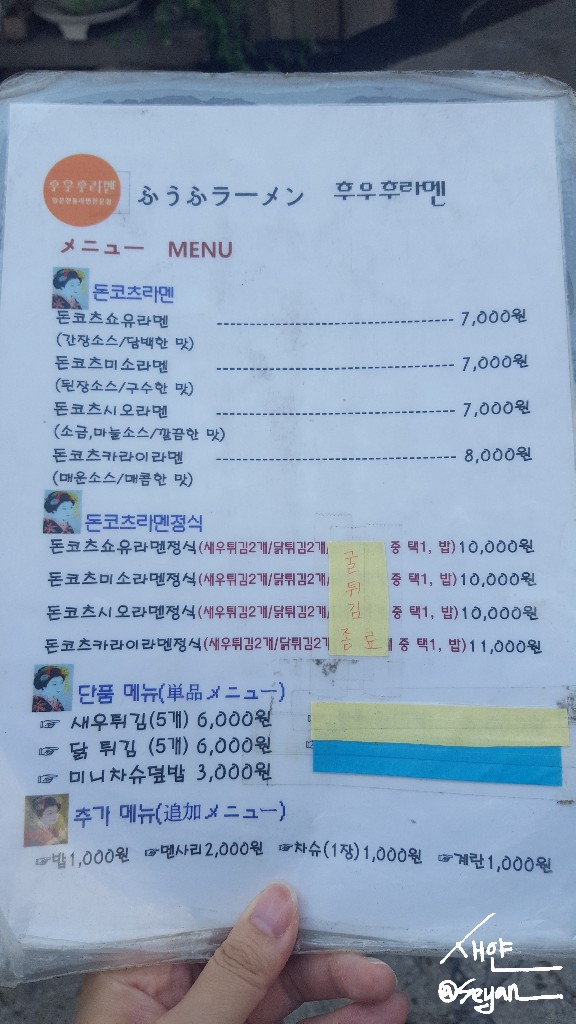 후우후라멘
ふうふラーメン 후우후라멘
メニュー MENU
돈코츠라멘
돈코츠쇼유라멘 ---------- 7,000원
(간장소스/담백한 맛)
돈코츠미소라멘 ---------- 7,000원
(된장소스/구수한 맛)
돈코츠시오라멘 ---------- 7,000원
(소금,마늘소스/깔끔한 맛)
돈코츠카라이라멘 ---------- 8,000원
(매운소스/매콤한 맛)
돈코츠라멘정식
돈코츠쇼유라멘정식(새우튀김2개/닭튀김2개/ 중 택1, 밥)10,000원
돈코츠미소라멘정식(새우튀김2개/닭튀김2개/ 중 택1, 밥)10,000원
돈코츠시오라멘정식(새우튀김2개/닭튀김2개/ 중 택1, 밥)10,000원
돈코츠카라이라멘정식(새우튀김2개/닭튀김2개/ 중 택1, 밥)11,000원
굴
튀
김
종료
단품 메뉴(単品メニュー)
☞ 새우튀김(5개) 6,000원
☞ 닭 튀김 (5개) 6,000원
☞ 미니차슈덮밥 3,000원
추가 메뉴(追加メニュー)
☞밥1,000원 ☞멘사리2,000원 ☞차슈(1장)1,000원 ☞계란1,000원
새얀
@seyan